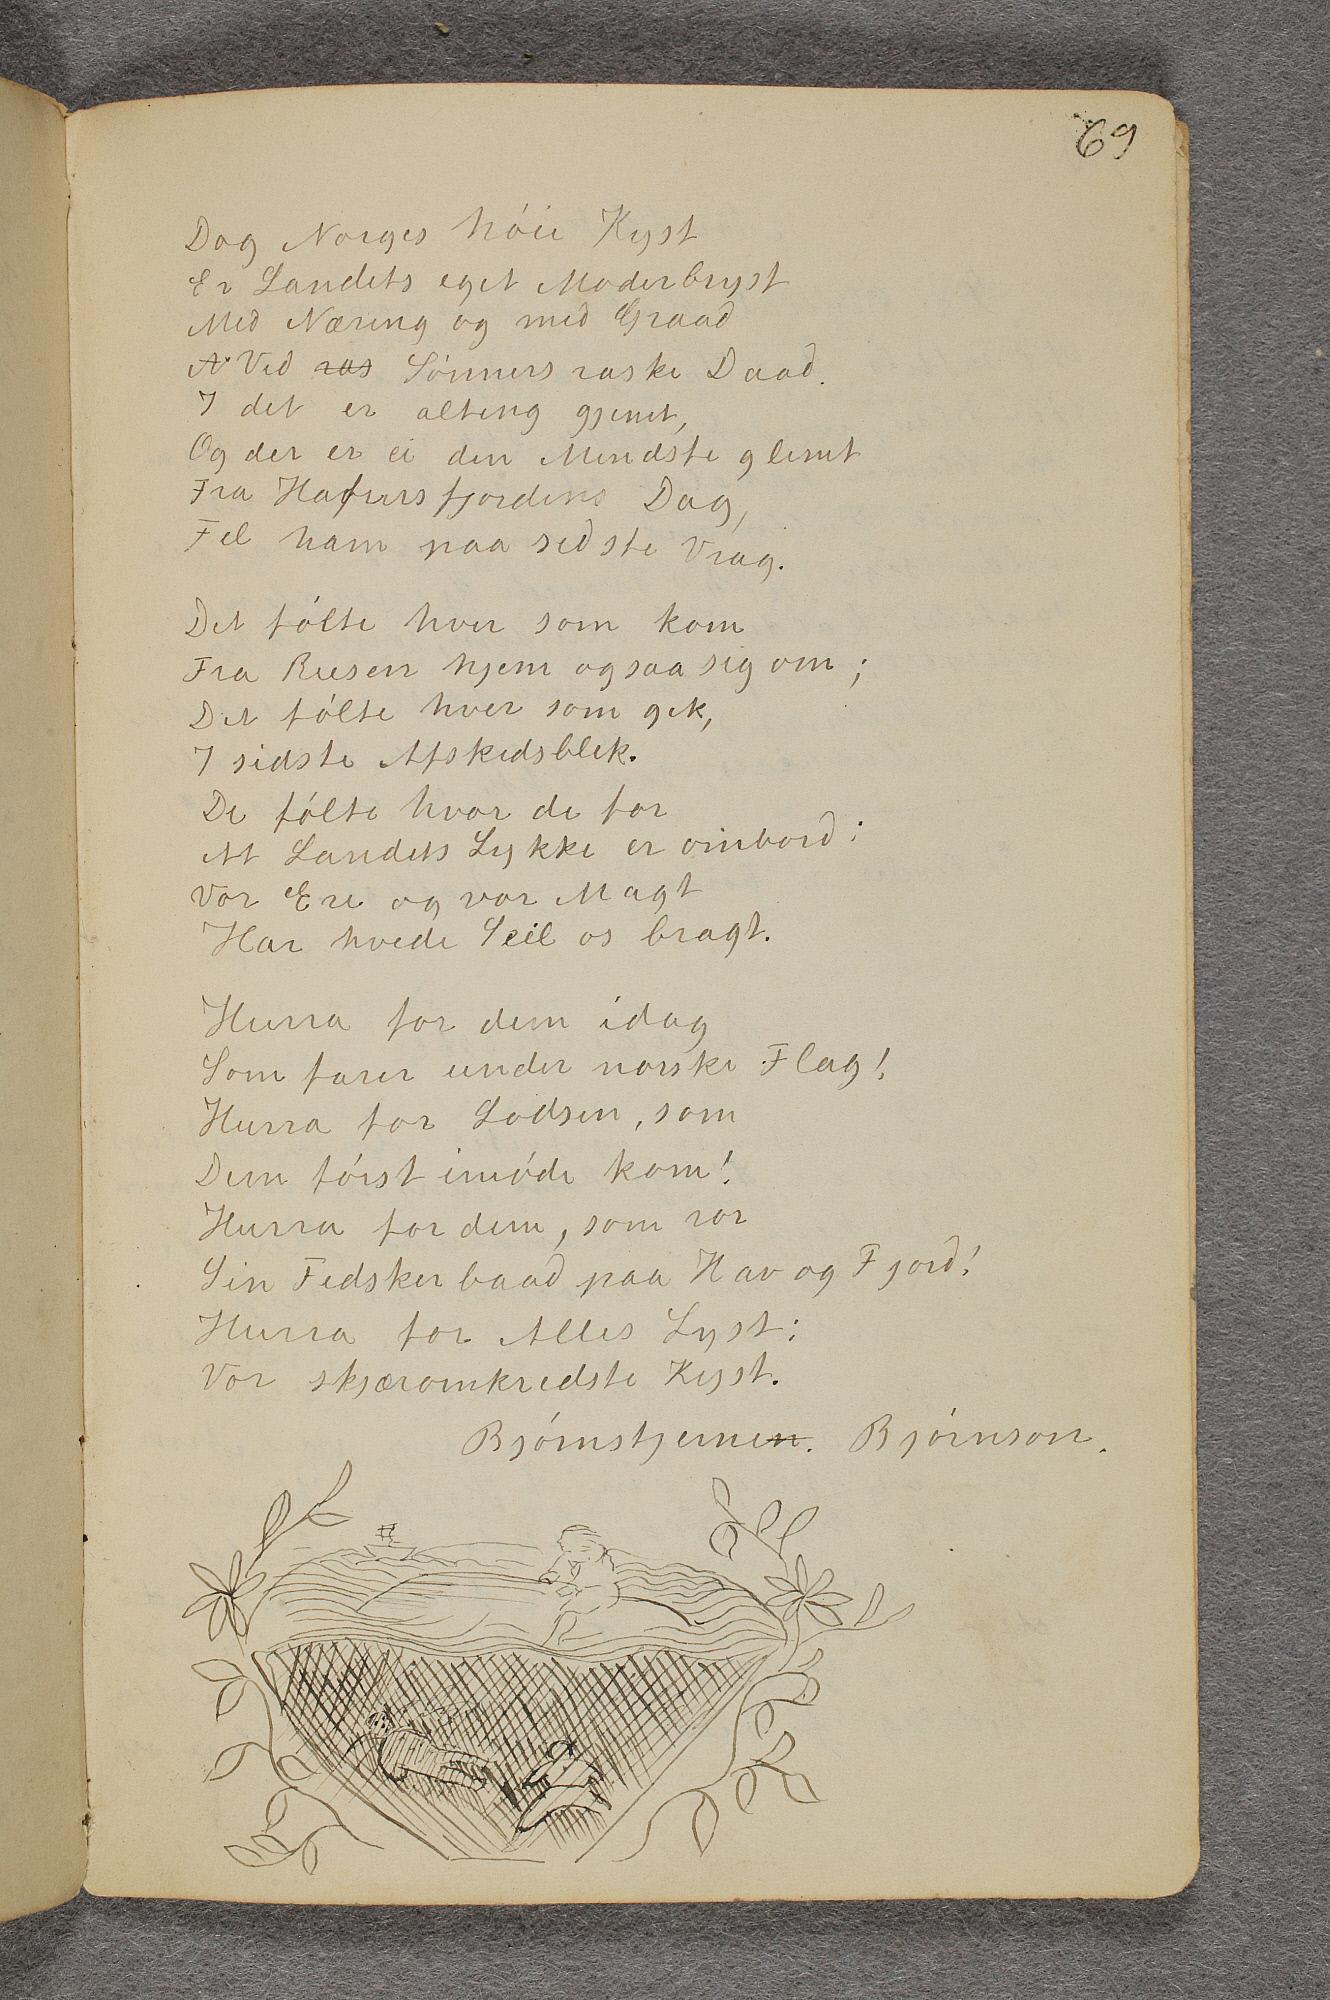 69
Dog Norges høie Kyst
Er Landets eget Moderbryst
Med Næring og med Graad
Ved ras Sønners raske Daad.
I det er alting gjemt,
Og der er ei den Mindste glemt
Fra Hafursfjordens Dag,
Til ham paa sidste Vrag.
Det følte hver som kom
Fra Reisen hjem og saa sig om;
Det følte hver som gik,
I sidste Afskedsblik.
De følte hvor de for
At Landets Lykke er ombord;
Vor Ere og vor Magt
Har hvide Seil os bragt.
Hurra for dem idag
Som farer under norske Flag!
Hurra for Lodsen, som
Dem først imøde kom!
Hurra for dem, som ror
Sin Fidskerbaad paa Hav og Fjord!
Hurra for Alles Lyst:
Vor skjæromkredste Kyst.
Bjørnstjernen. Bjørnson.